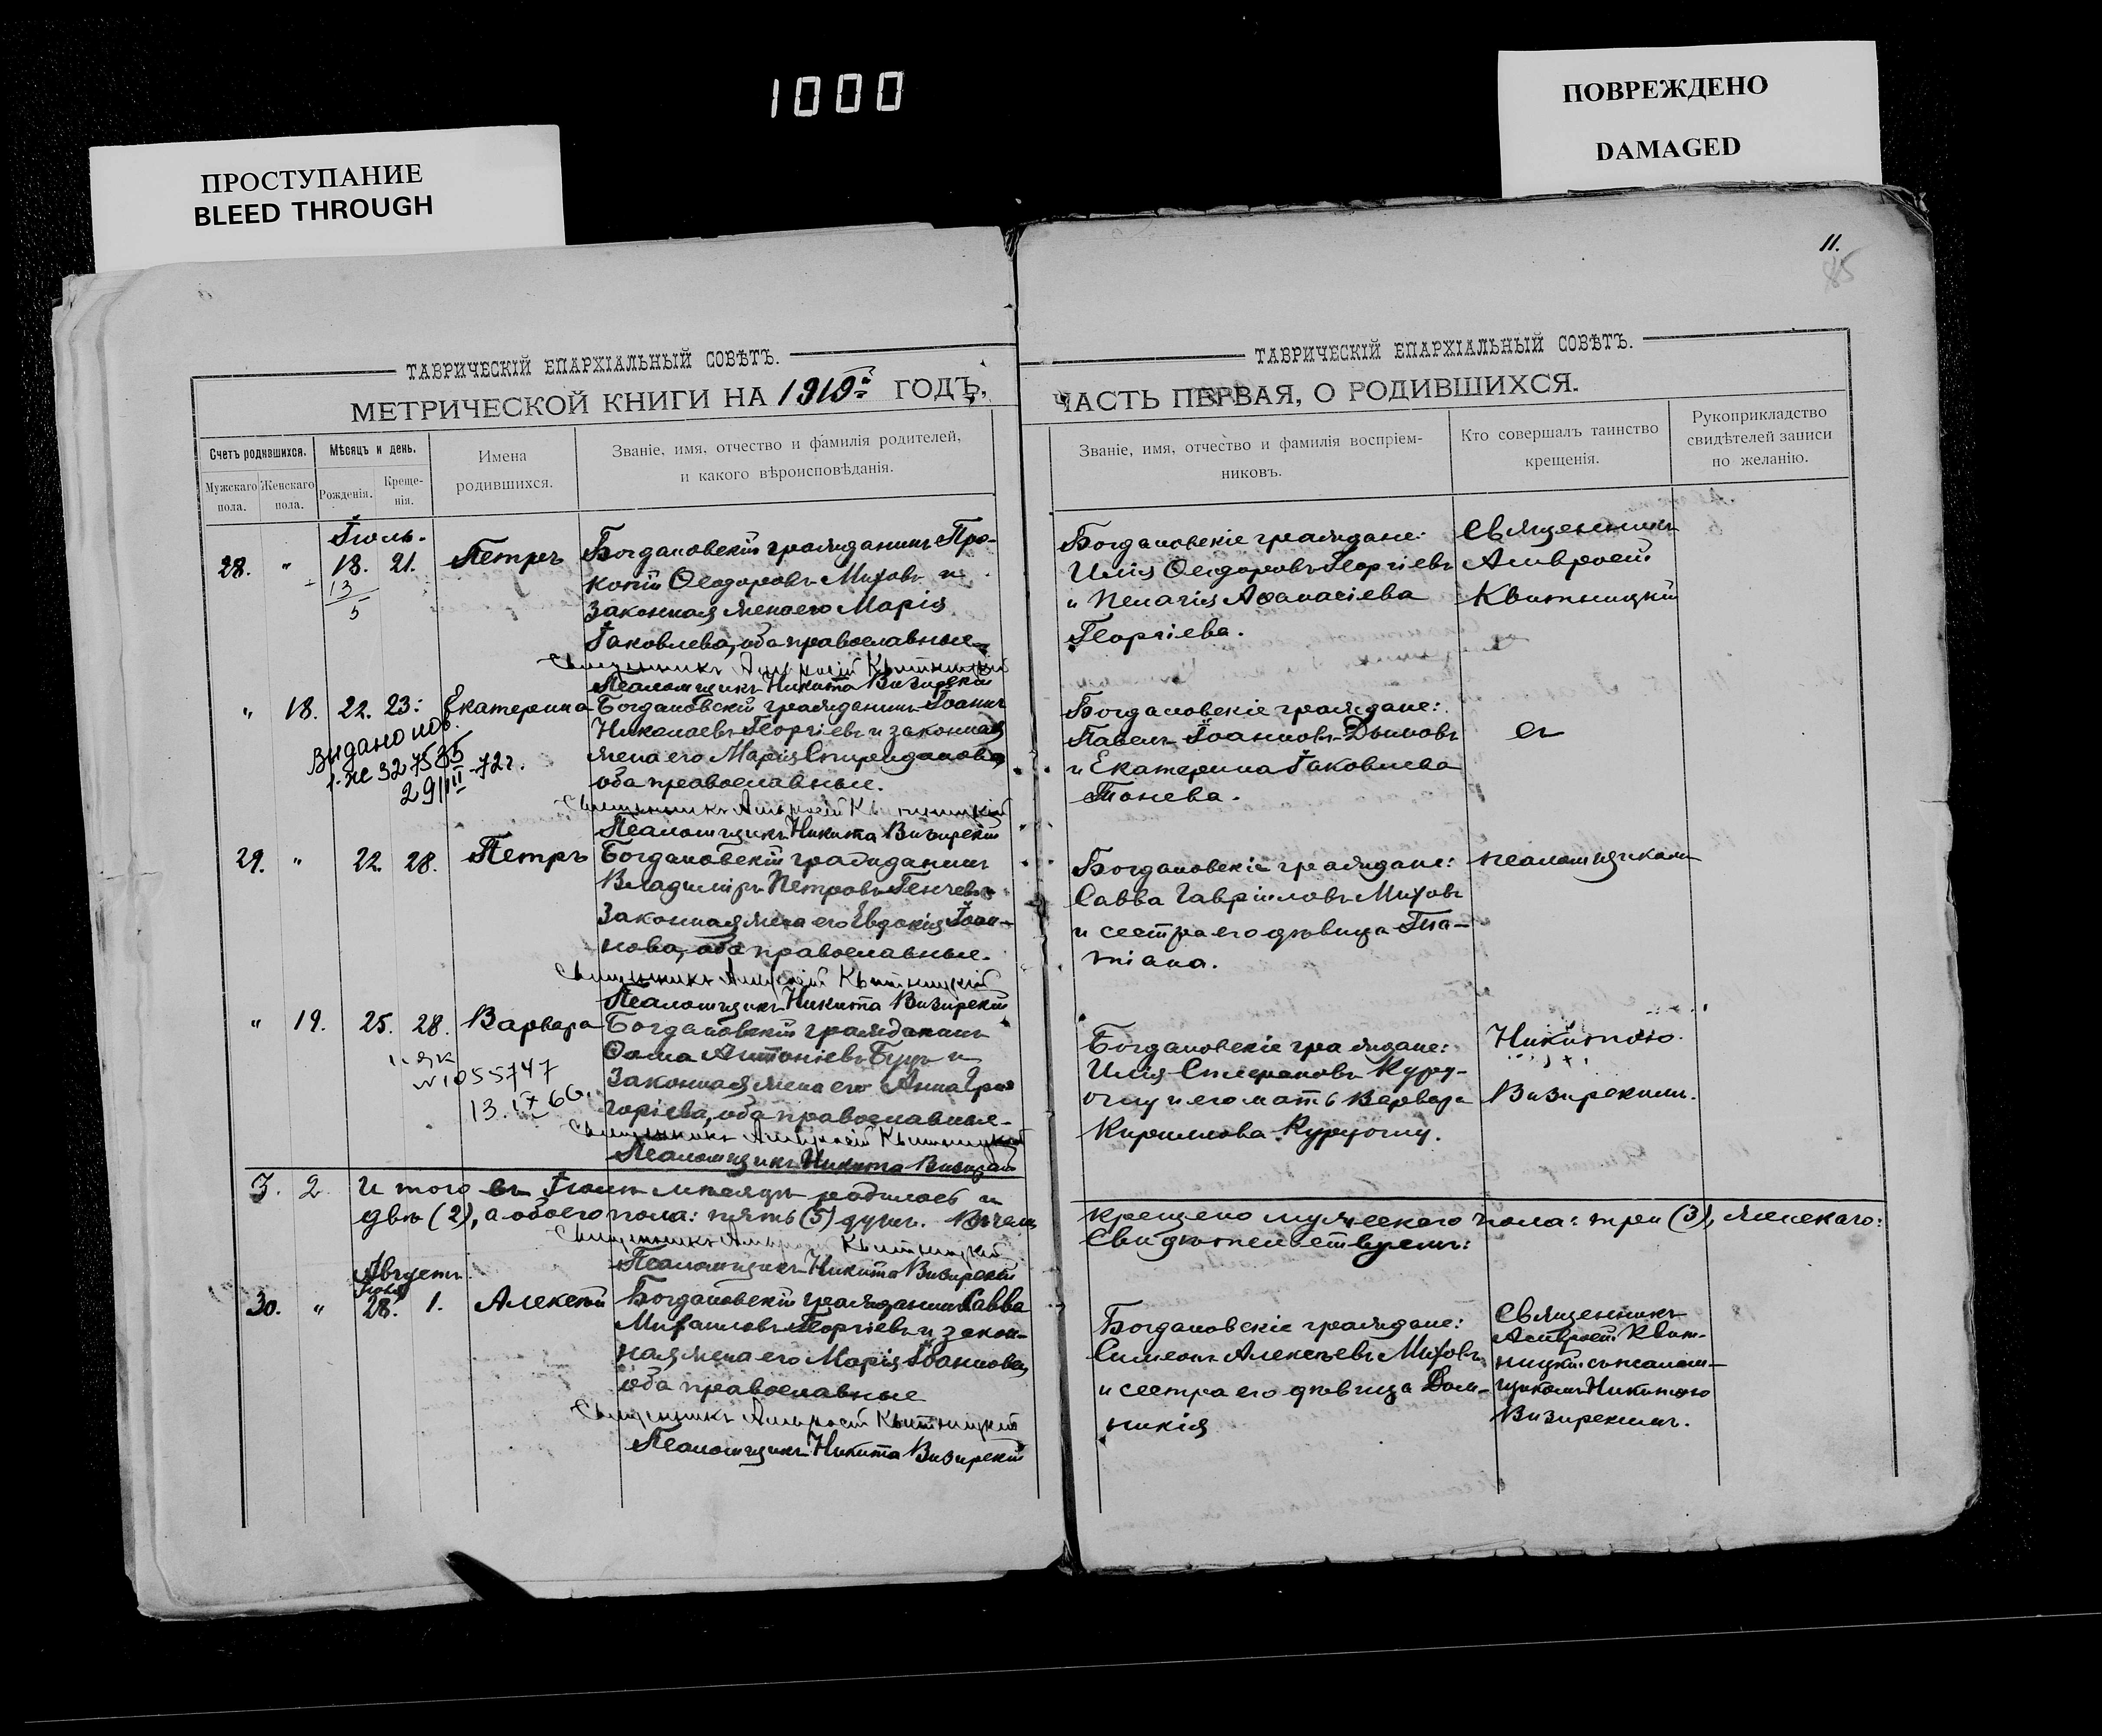 1000
ПОВРЕЖДЕНО
DAMAGED
ПРОСТУПАНИЕ
BLEED THROUGH
11.
85
ТАВРИЧЕСКІЙ ЕПАРХІАЛЬНЫЙ СОВѢТЪ.
МЕТРИЧЕСКОЙ КНИГИ НА 1919 ГОДЪ,
Счетъ родившихся.
Мѣсяцъ и день.
Имена
родившихся.
Званіе, имя, отчество и фамилія родителей,
и какого вѣроисповѣданія.
Мужскаго
пола.
Женскаго
пола.
Рожденія.
Креще-
нія.
Іюль.
28. " 18. 21. Петръ
13
5
Богдановскій гражданинъ Про-
копій Ѳеодоровъ Миховъ и
законная жена его Марія
Іаковлева, оба православные
Священникъ Амвросій Квитницкій
Псаломщикъ Никита Визирскій
" 18. 22. 23. Екатерина
Видано
29/III-72г.
Богдановскій гражданинъ Іоаннъ
Николаевъ Георгіевъ и законная
жена его Марія Спиридонова,
оба православные.
Священникъ Амвросій Квитницкій
Псаломщикъ Никита Визирскій
29. " 22. 28. Петръ
Богдановскій гражданинъ
Владиміръ Петровъ Генчевъ и
законная жена его Евдокія Іоан-
нова, оба православные.
Священникъ Амвросій Квитницкій
Псаломщикъ Никита Визирскій
" 19. 25. 28. Варвара
N 1055747
13. IX 66.
Богдановскій гражданинъ
Ѳома Антоніевъ и
законная жена его Анна Гри
горіева, оба православные.
Священникъ Амвросій Квитницкій
Псаломщикъ Никита Визирскій
3. 2 Итого въ Іюлѣ мѣсяцѣ родилось и
двѣ (2), а обоего пола: пять (5) душъ. В чемъ
Священникъ Амвросій Квитницкій
Псаломщикъ Никита Визирскій
Августъ
Іюля
30. " 28. 1. Алексій
Богдановскій гражданинъ Савва
Михаиловъ Георгіевъ и закон-
ная жена его Марія Іоаннова,
оба православные
Священникъ Амвросій Квитницкій
Псаломщикъ Никита Визирскій
ТАВРИЧЕСКІЙ ЕПАРХІАЛЬНЫЙ СОВѢТЪ.
ЧАСТЬ ПЕРВАЯ, О РОДИВШИХСЯ.
Званіе, имя, отчество и фамилія воспріем-
никовъ.
Кто совершалъ таинство
крещенія.
Рукоприкладство
свидѣтелей записи
по желанію.
Богдановскіе граждане:
Илія Ѳеодоровъ Георгіевъ
и Пелагія Аѳанасіева
Георгіева.
Священникъ
Амвросій
Квитницкій
Богдановскіе граждане:
Павелъ Іоанновъ Дымовъ
и Екатерина Іаковлева
Тонева.
съ
Богдановскіе граждане:
Савва Гавріиловъ Миховъ
и сестра его дѣвица Та-
тіана.
псаломщикомъ
Богдановскіе граждане:
Илія Стефановъ Куру-
очлу и его мать Варвара
Кириллова Куруочлу.
Никитою
Визирскимъ.
крещено мужескаго пола: три (3), женскаго:
Свидѣтельствуемъ:
Богдановскіе граждане:
Симеонъ Алексѣевъ Миховъ
и сестра его дѣвица Дом-
никія
Священникъ
Амвросій Квит-
ницкій съ псалом-
щикомъ Никитою
Визирскимъ.